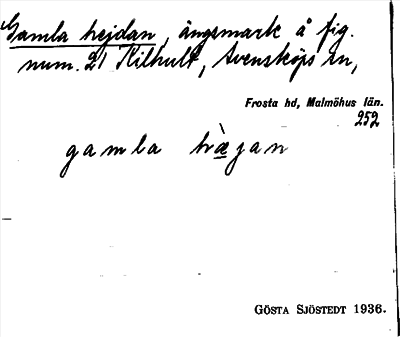 Gamla hejdan, ängsmark å fig.
num. 21 Kilhult, Svensköps sn,
Frosta hd, Malmöhus län.
252
gamla hæ̀jan
GÖSTA SJÖSTEDT 1936.